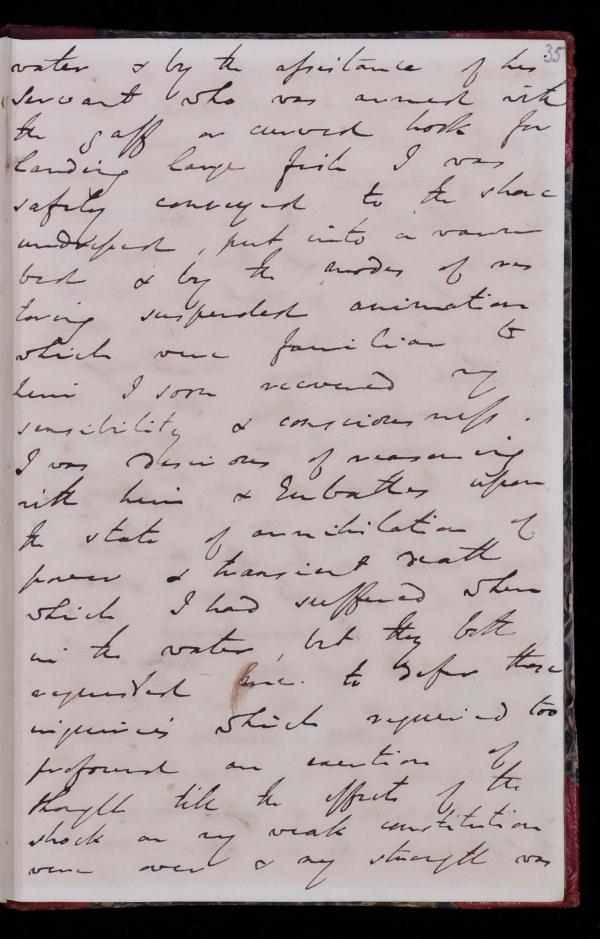 35
water & by the assistance of his
servant who was armed with
the gaff or curved hook for
landing large fish I was
safely conveyed to the shore
undressed, put into a warm
bed & by the modes of res
toring suspended animation
which were familiar to
him I soon recovered my
sensibility & consciousness.
I was desirous of reasoning
with him & Eubathes upon
the state of annihilation of
power & transient death
which I had suffered when
in the water, but they both
requested me. to defer those
inquiries which required too
profound an exertion of
thought till the effects of the
shock on my weak constitution
were over & my strength was